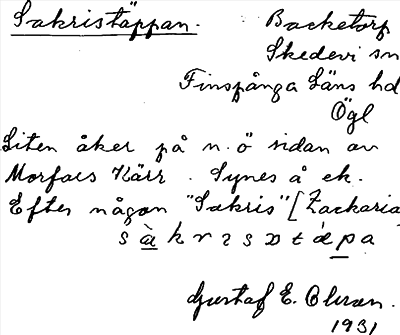 Sakristäppan. Backetorp
Skedevi sn
Finspånga Läns hd
Ögl
Liten åker på n.ö sidan av
Morfars Kärr. Synes å ek.
Efter någon "Sakris" [Zackaria
s à k r ɪ s ɒ t ǽ p a
Gustaf E. Olsson.
1931